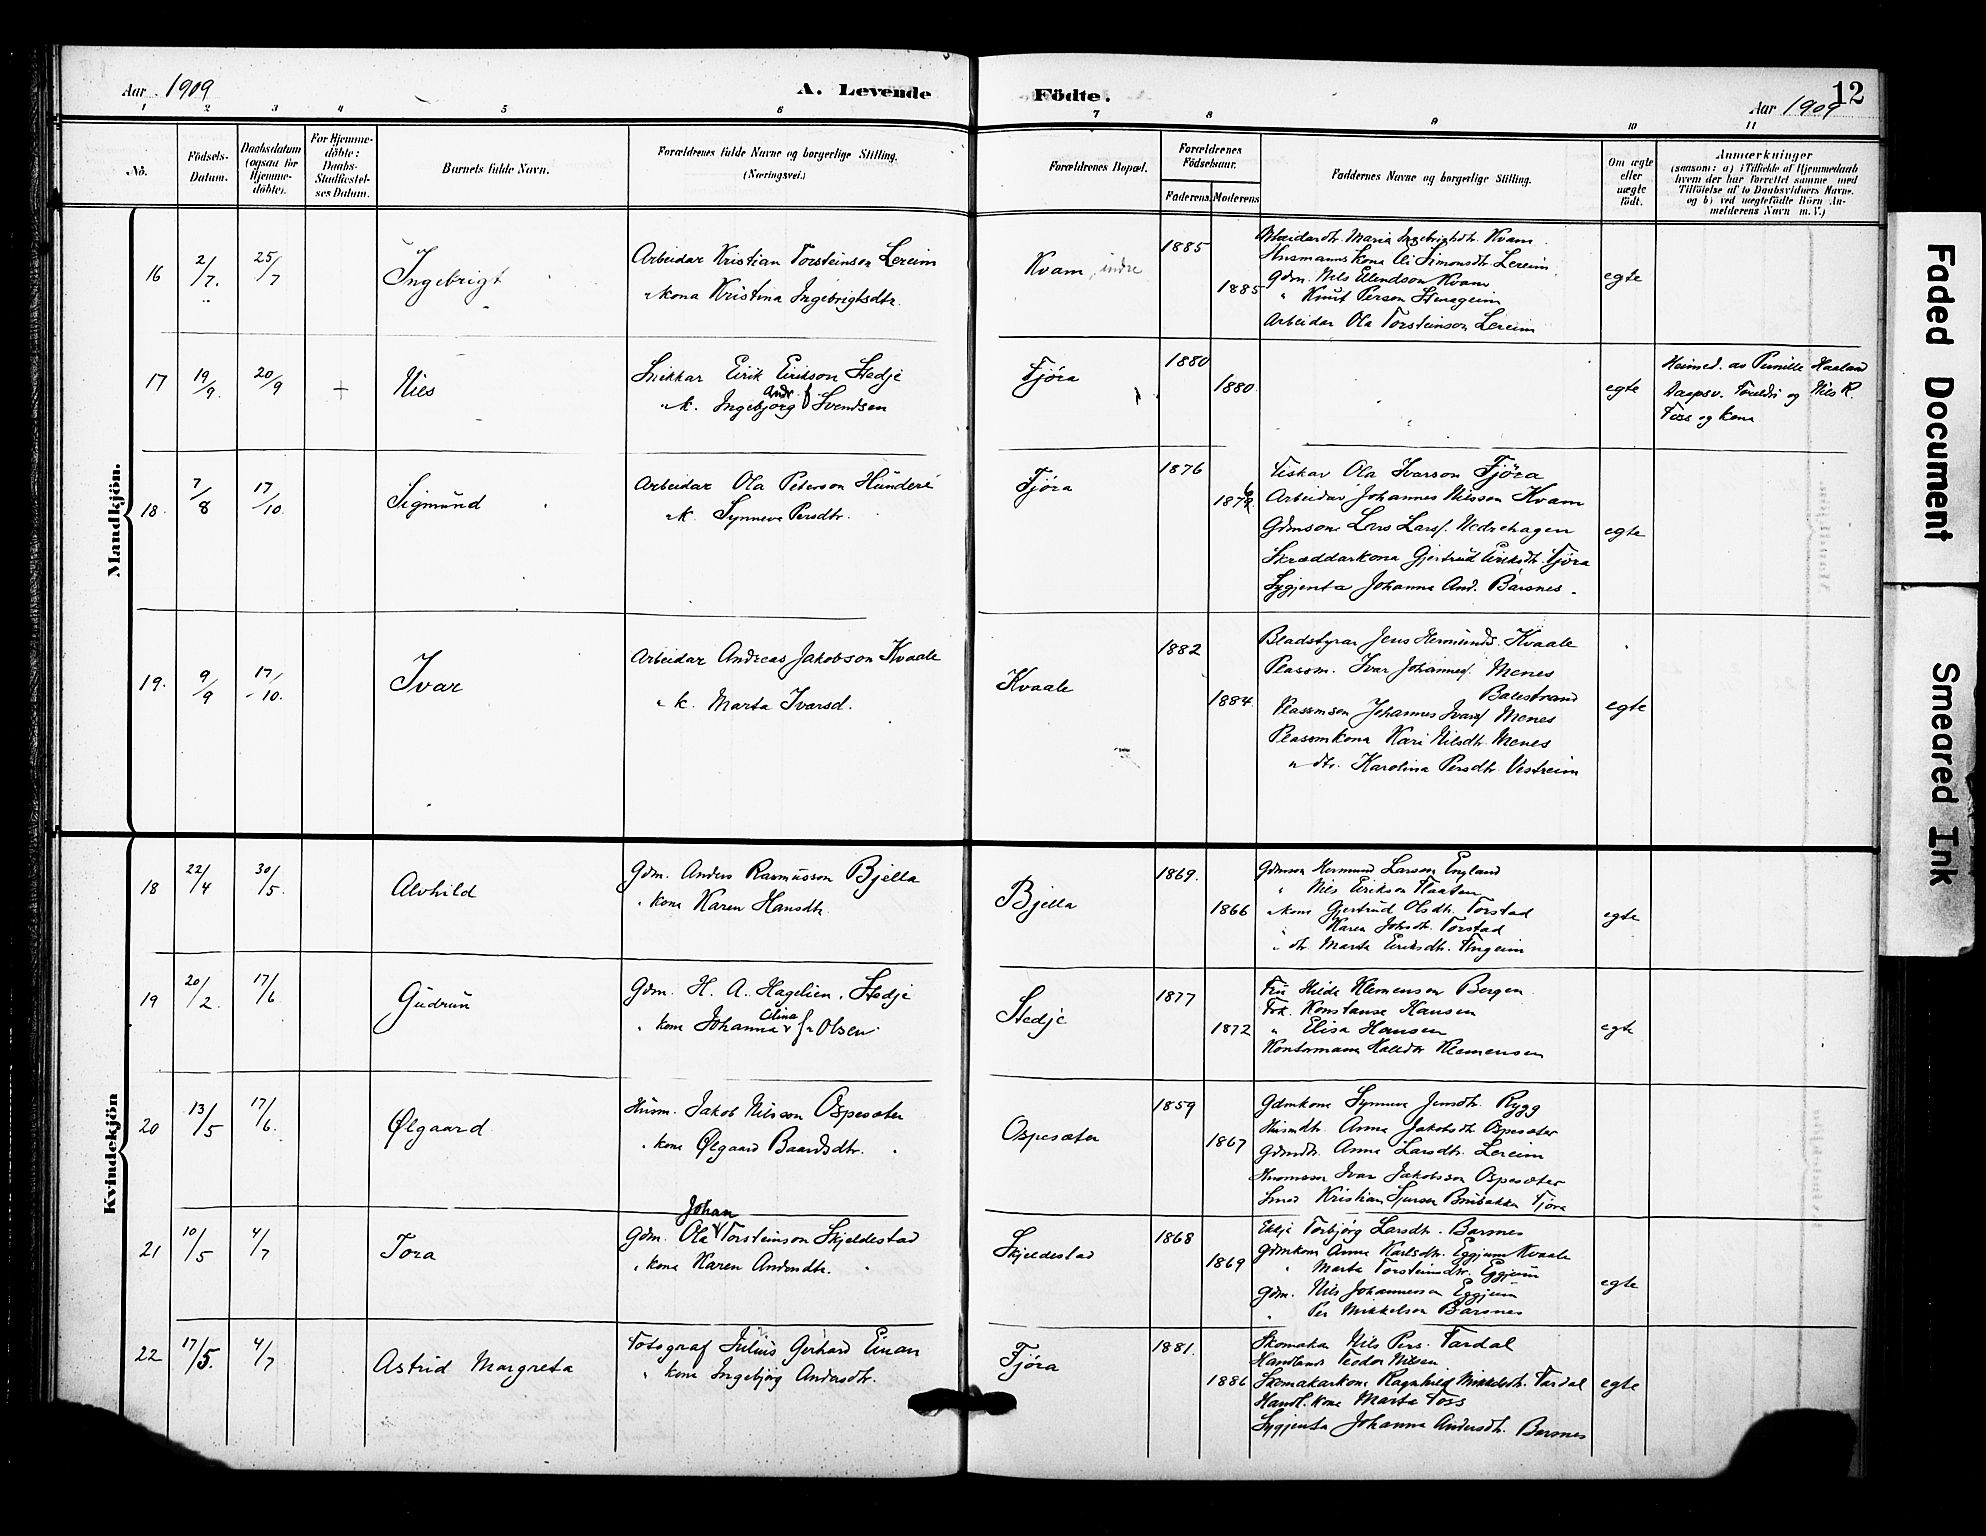 Aar 1909
A. Levende
Födte.
12
Aar 1909
1 2 3 4 5 6 7 8 9 10 11
No.
Födsels-
Datum.
Daabsdatum
(ogsaa for
Hjemme-
döbte).
For Hjemme-
döbte:
Daabs-
Stadfæstel-
ses Datum.
Barnets fulde Navn.
Forældrenes fulde Navne og borgerlige Stilling.
(Næringsvei.)
Forældrenes Bopæl.
Forældrenes
Födselsaar.
Faderens. Moderens.
Faddernes Navne og borgerlige Stilling.
Om ægte
eller
uægte
födt.
Anmærkninger
(saasom: a) i Tilfælde af Hjemmedaab
hvem der har forrettet samme med
Tilföielse af to Daabsvidners Navne.
og b) ved uægtefödte Börn An-
melderens Navn m. V.)
Mandkjön.
16 2/7. 25/7 Ingebrigt
Arbeidar Kristian Torsteinson Lereim
" kona Kristina Ingebrigtsdtr.
Kvam, indre
1885
1885
Maria Ingebrigtsdtr. Kvam
Husmannskona Eli Simonsdtr. Lereim
Gdm. Nils Ellendson Kvam
" Knut Person Stenageim
Arbeidar Ola Torsteinson Lereim
egte
17 19/9. 20/9 + Nies
Snikkar Eirik Eirikson Stedje
" k. Ingebjörg Andr. f. Svendsen
Fjöra
1880
1880.
egte
Heimed. av Pernille Haaland
Daapsv. Foreldri og Nils R.
Foss og kona
18. 7/8 17/10. Sigmund
Arbeidar Ola Peterson Hundere
" k. Synneva Persdtr.
Fjöra
1876
Fiskar Ola Ivarson Fjöra
Arbeidar Johannes Nilsson Kvam
Gdmsone Lars Larsf. Nedrehagen
Skræddarkona Gjertrud Eiriksdtr. Fjöra
Sygjenta Johanna And. Barsnes.
egte
19. 9/9 17/10. Ivar
Arbeidar Andreas Jakobson Kvaale
" k. Marta Ivarsd.
Kvaale
1882
1884.
Bladstyrar Jens Hermunds. Kvaale
Plassm. Ivar Johannesf. Menes
Balestrand
Plassmson Johannes Ivarsf Menes
Plassmkona Kari Nilsdtr. Menes
" dtr. Karolina Persdtr. Vestreim
egte
Kvindekjön
18 22/4 30/5. Alvhild
Gdm. Anders Rasmusson Bjella
" kona Karen Hansdtr.
Bjella
1869.
1866
Gdmson Hermund Larson England
" Nils Eirikson Flaaten
" kona Gjertrud Olsdtr. Torstad
" Karen Johsdtr. Torstad
" dtr. Marta Eiriksdtr. Fingeim
egte
19 20/2. 17/6. Gudrun
Gdm. H. A. Hagelien, Stedje
" kona Johanna Olina f. Olsen
Stedje
1877
1872
Fru Hilda Klemensen Bergen
Frk. Konstanse Hansen
" Elisa Hansen
Kontormann Halldor Klemensen
egte
20 13/5 17/6. Ølgaard
Husm. Jakob Nilsson Ospesæter
" kona Ølgaard Baardsdtr.
Ospesæter
1859
1867
Gdmkona Synneva Jensdtr. Rygg
Husmdtr. Anna Jakobsdtr. Ospesæter
Gdmdtr. Anna Larsdtr. Lereim
Husmsson Ivar Jakobsson Ospesæter
Smed Kristian Sjurson Brubakken Fjöra
21 10/5 4/7 Tora
Gdm. Ola Johan Torsteinson Skjeldestad
" kona Karen Andersdtr.
Skjeldestad
1868
1869
Ekkja Torbjörg Larsdtr. Barsnes
Gdmkona Anna Karlsdtr. Eggjum Kvaale
" Marta Torsteinsdtr. Eggjum
Gdm. Nils Johannesson Eggjum
" Per Mikkelson Barsnes
egte
22 17/5. 4/7. Astrid Margreta
Fotograf Julius Gerhard Einan
" kona Ingebjörg Andersdtr.
Fjöra
1881.
1886
Skomakar Nils Pers. Tardal
Handlande Teodor Nilsen
Skomakarkona Ragnhild Mikkelsdtr. Tardal
Handl. kona Marta Foss
Sygjenta Johanna Andersdtr. Barsnes
egte
Faded Document
Smeared Ink